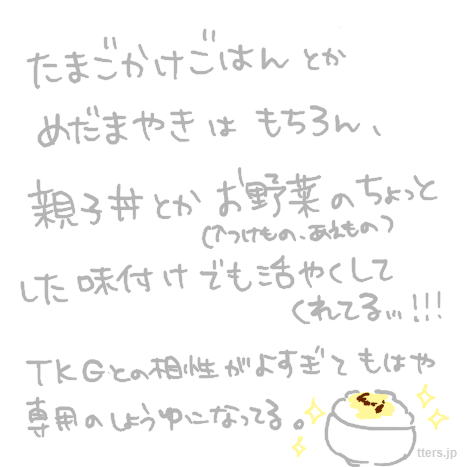 たまごかけごはんとか
めだまやきは もちろん、
親子丼とか お野菜のちょっと
(↑つけもの、あえもの)
した味付けでも活やくして
くれてる…!!!
TKGとの相性がよすぎてもはや
専用のしょうゆになってる。
tters.jp